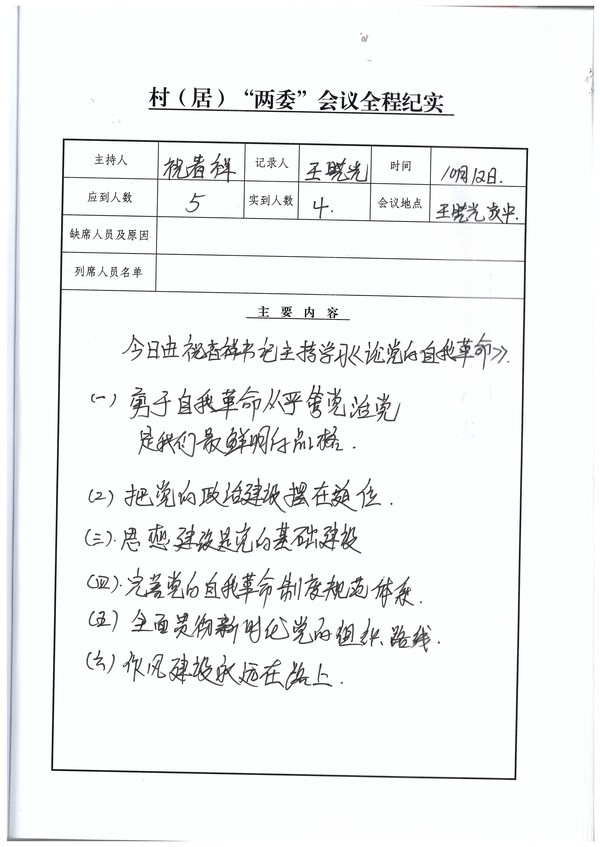 村（居）“两委”会议全程纪实
主持人 祝春祥 记录人 王晓光 时间 10月12日.
应到人数 5 实到人数 4. 会议地点 王晓光家中.
缺席人员及原因
列席人员名单
主要内容
今日由祝春祥书记主持学习《论党的自我革命》.
(一) 勇于自我革命从严管党治党
是我们最鲜明行品格.
(2) 把党的政治建设摆在首位.
(三). 思想建设是党的基础建设
(四). 完善党的自我革命制度规范体系.
(五) 全面贯彻新时代党的组织路线.
(六) 作风建设永远在路上.